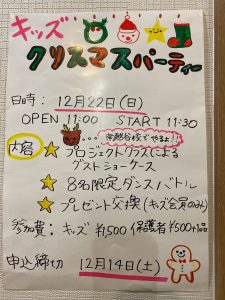 キッズ
クリスマスパーティー
日時： 12月22日(日)
OPEN 11:00 START 11:30
... 南越谷校でやるよ!!
内容 ☆ プロジェクトクラスによる
ゲストショーケース
☆ 8名限定ダンスバトル
☆ プレゼント交換(キッズ会員のみ)
参加費： キッズ ¥1,500 保護者 ¥500+1品
申込締切 12月14日(土)